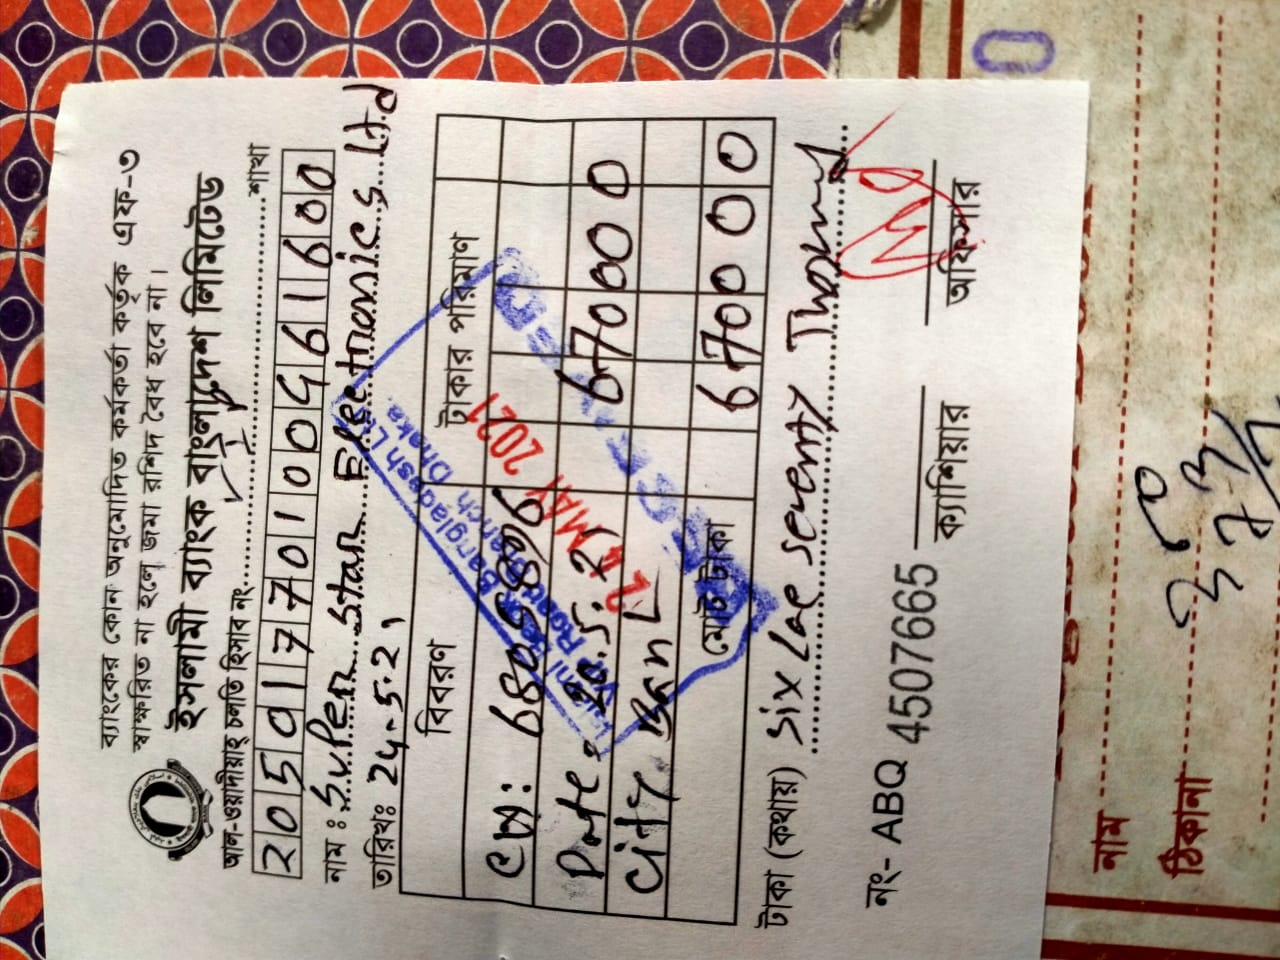 ব্যাংকের কোন অনুমোদিত কর্মকর্তা কর্তৃক এফ-৩
স্বাক্ষরিত না হলে জমা রশিদ বৈধ হবে না।
ইসলামী ব্যাংক বাংলাদেশ লিমিটেড
আল-ওয়াদীয়াহ্ চলতি হিসাব নং VIP শাখা
নাম : Super Star Electronics Ltd
তারিখঃ 24-5-21
বিবরণ টাকার পরিমাণ
Date: 20.5.21 670000
City Bank
মোট টাকা 670000
Islami Bank Bangladesh Ltd.
VIP Road Branch Dhaka.
24 MAY 2021
টাকা (কথায়) Six Lac Seventy Thousand
নং- ABQ 4507665 ক্যাশিয়ার অফিসার
নাম
ঠিকানা